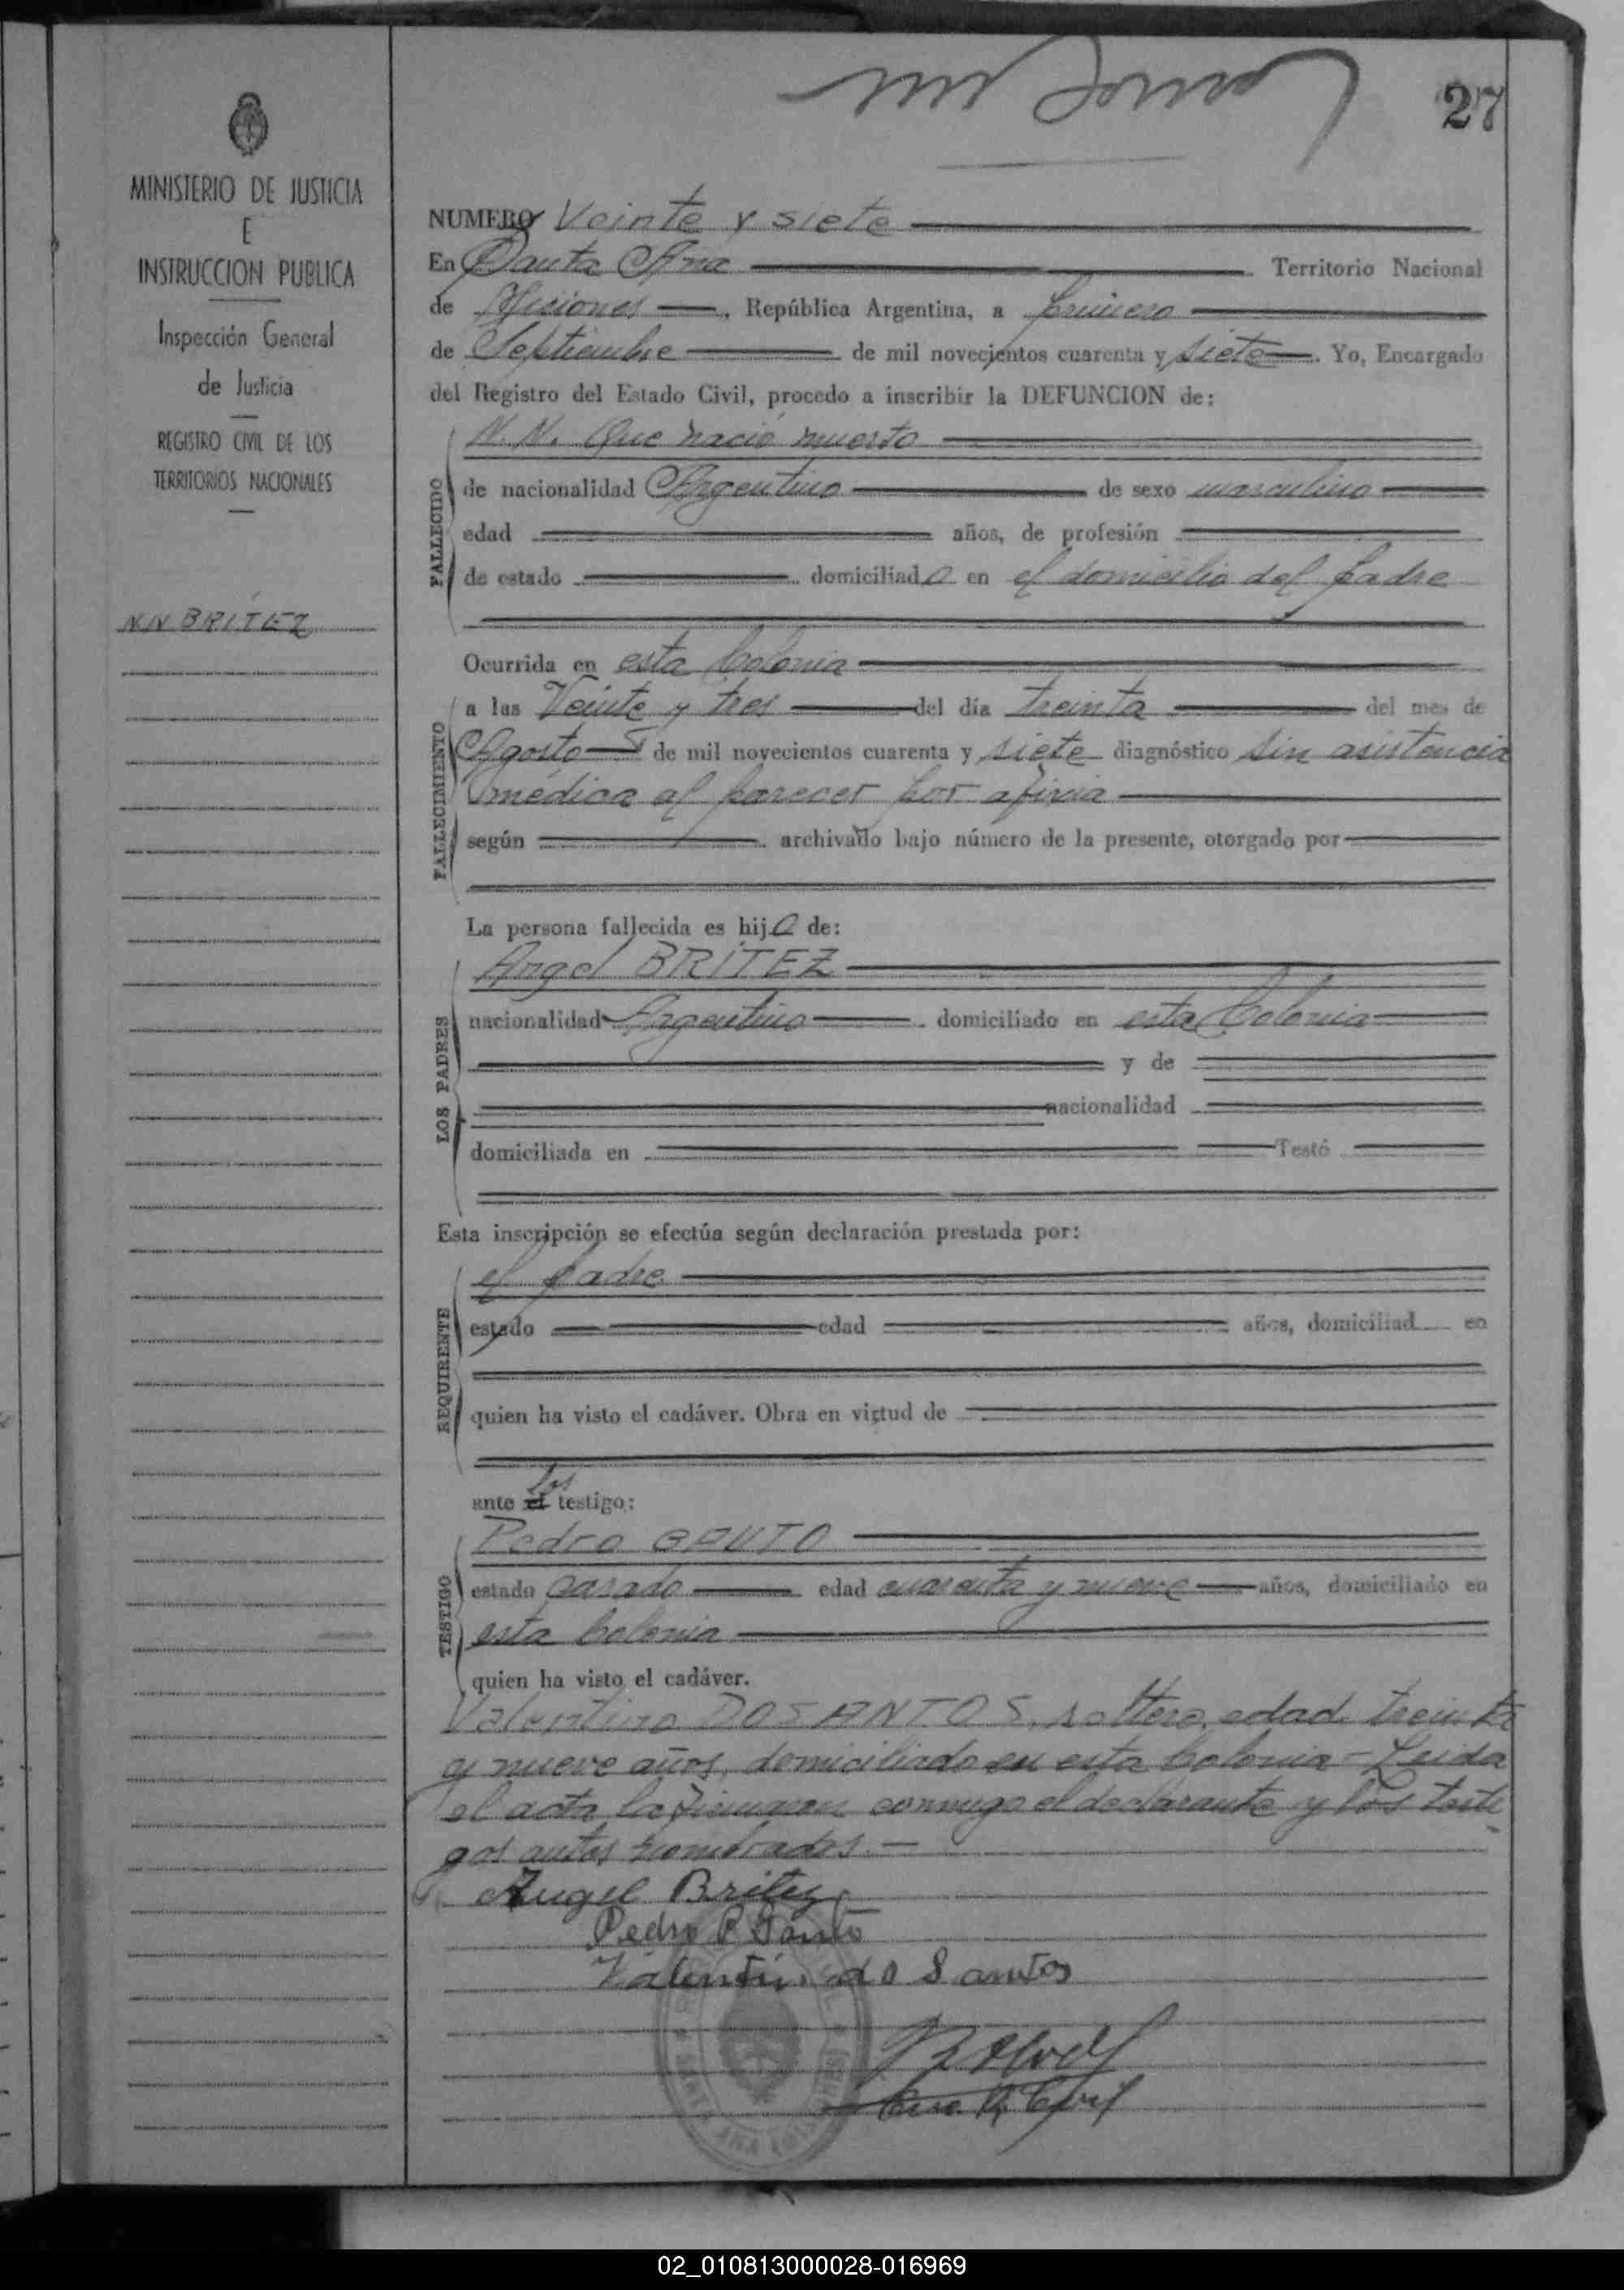 27
MINISTERIO DE JUSTICIA
E
INSTRUCCION PUBLICA
Inspección General
de Justicia
REGISTRO CIVIL DE LOS
TERRITORIOS NACIONALES
NN BRITEZ
NUMERO Veinte y siete
En Santa Ana Territorio Nacional
de Misiones, República Argentina, a primero
de Septiembre de mil novecientos cuarenta y siete. Yo, Encargado
del Registro del Estado Civil, procedo a inscribir la DEFUNCION de:
N. N. Que nació muerto
FALLECIDO
de nacionalidad Argentino de sexo masculino
edad años, de profesión
de estado domiciliado en el domicilio del padre
Ocurrida en esta Colonia
FALLECIMIENTO
a las Veinte y tres del día treinta del mes de
Agosto de mil novecientos cuarenta y siete diagnóstico sin asistencia
médica al parecer por afixia
según archivado bajo número de la presente, otorgado por
La persona fallecida es hijo de:
LOS PADRES
Angel BRITEZ
nacionalidad Argentino domiciliado en esta Colonia
y de
nacionalidad
domiciliada en Testó
Esta inscripción se efectúa según declaración prestada por:
REQUIRENTE
el padre
estado edad años, domiciliad en
quien ha visto el cadáver. Obra en virtud de
los
ante el testigo:
TESTIGO
Pedro GAUTO
estado casado edad cuarenta y nueve años, domiciliado en
esta Colonia
quien ha visto el cadáver.
Valentino DOSANTOS, soltero, edad treinta
y nueve años, domiciliado en esta Colonia - Leida
el acta la firmaron conmigo el declarante y los testi
gos antes nombrados. -
Angel Britez
Pedro P. Gauto
Valentin do Santos
02_010813000028-016969